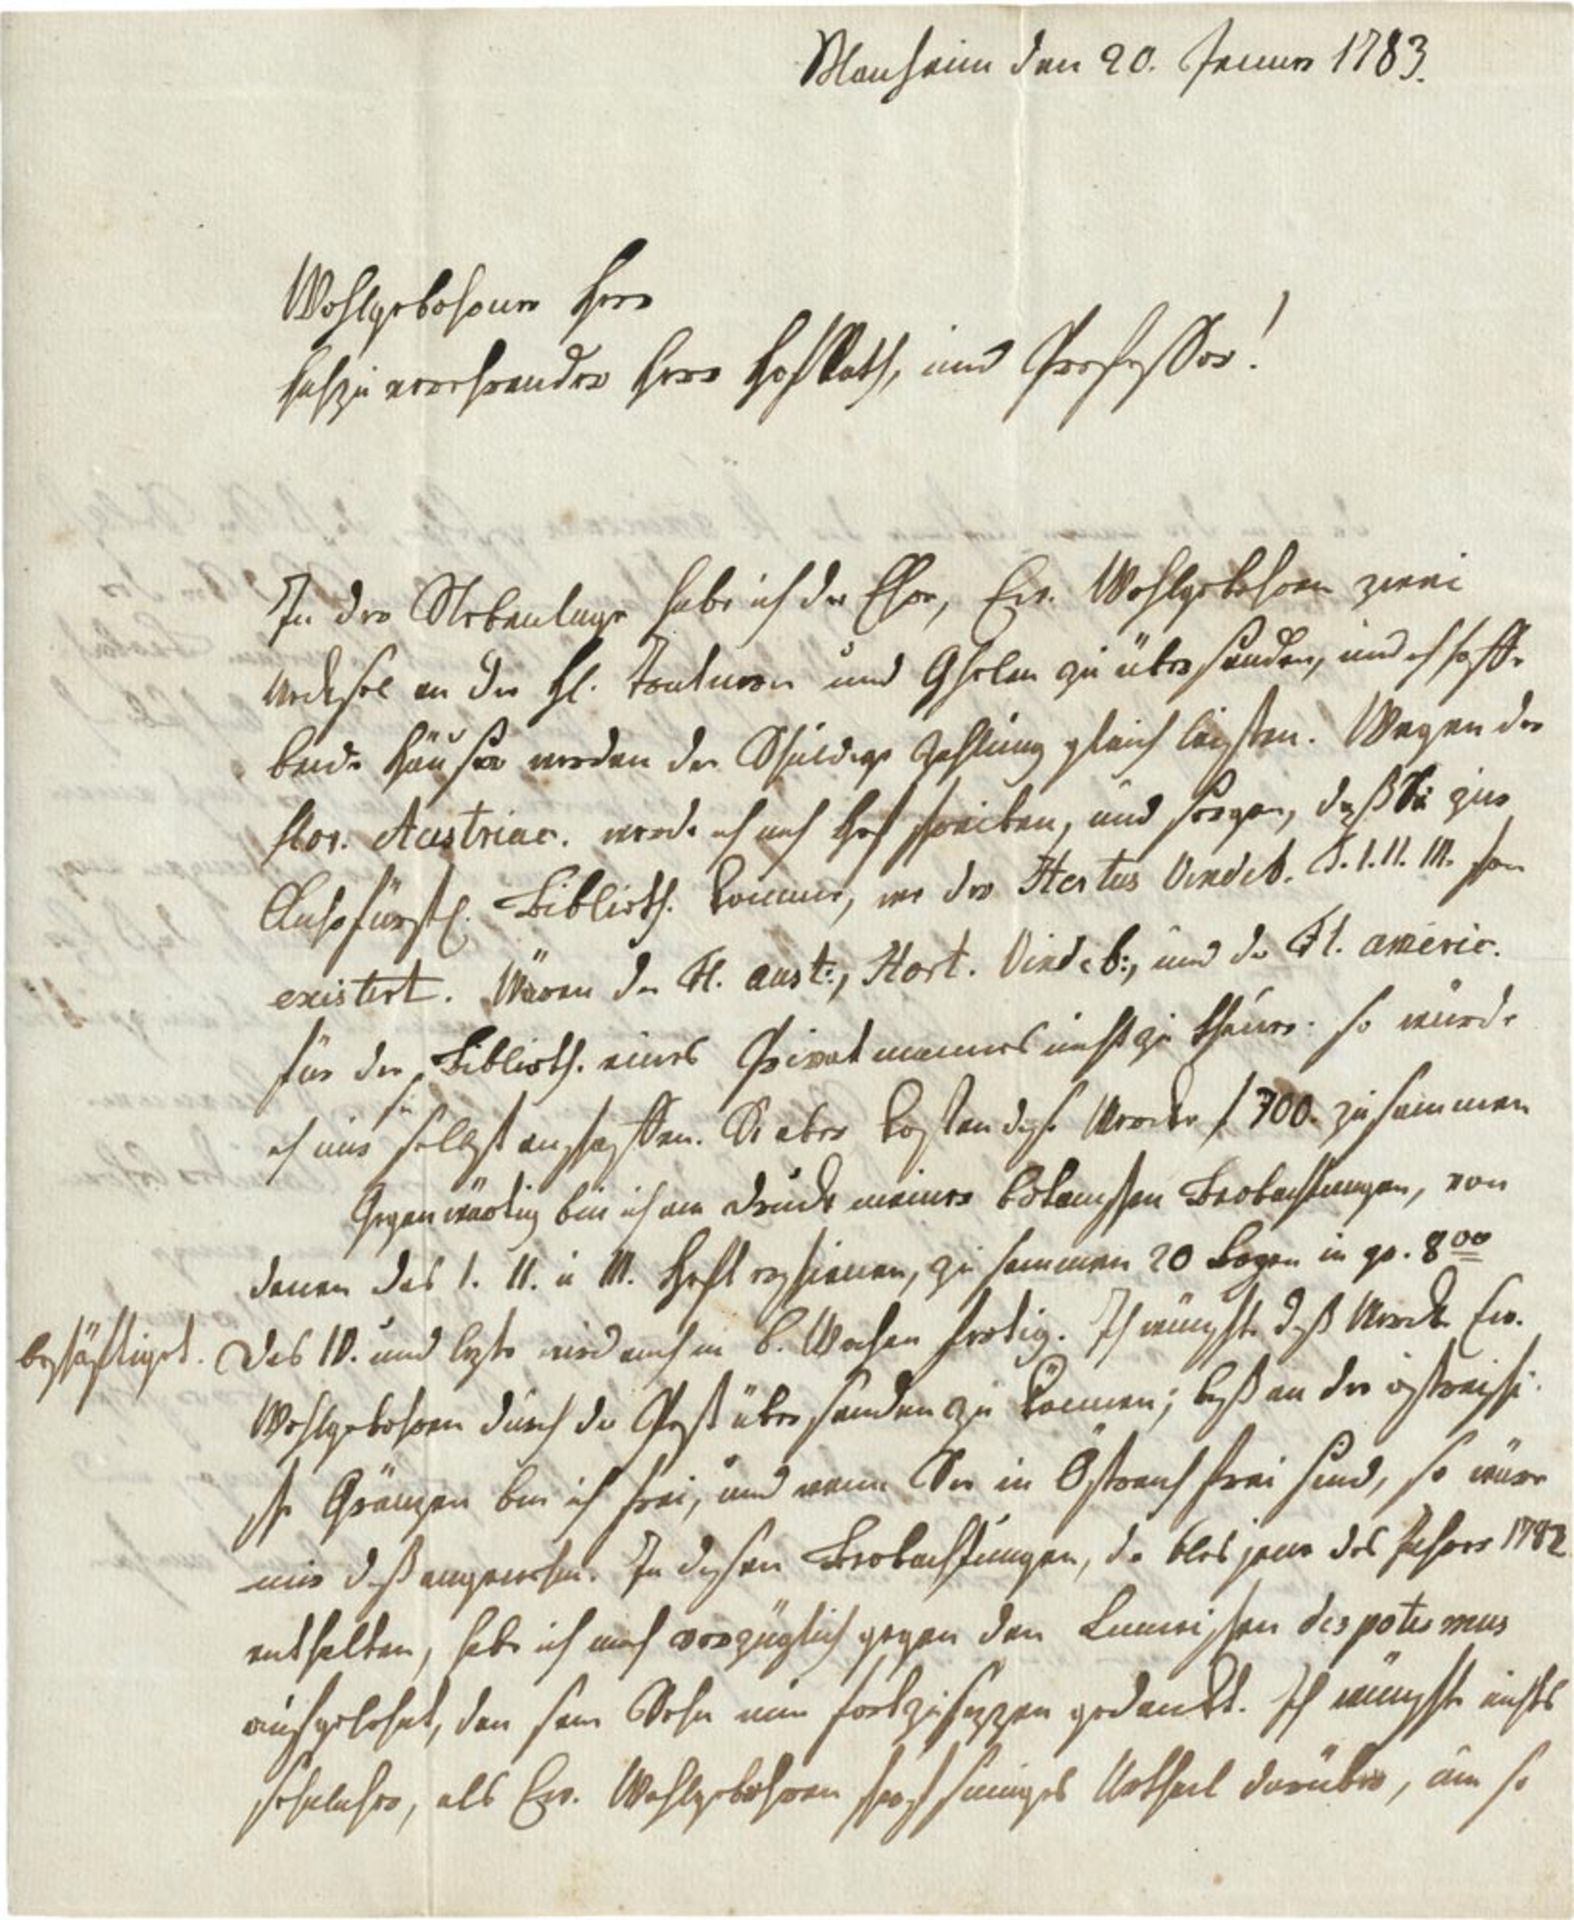 Manheim den 20. Jenner 1783.
Wohlgebohrner Herr
Hochzuverehrender Herr HofRath, und Professor!
In der Nebenlage habe ich die Ehre, Ew. Wohlgebohren zwei
Wechsel an die HH. und zu übersenden, und ich hoffe
beide Häuser werden die Schuldige Zahlung gleich leisten. Wegen der
flor. Austriac. werde ich nach Hof schreiben, und sorgen, daß sie zur
Churfürstl. Biblioth. komme, wo der Hortus Vindeb. T. I. II. III. schon
existirt. Wären die Fl. aust:, Hort. Vindeb:, und die Fl. americ.
für die Biblioth. eines Privatmannes nicht zu theuer: so würde
ich mir selbst anschaffen. So aber kosten diese Werke f 700. zusammen
Gegenwärtig bin ich am Drucke meiner botanischen Beobachtungen, von
denen das I. II. u III. Heft erschienen, zusammen 20 Bogen in gr. 8vo
beschäftiget. Das IV. und lezte wird auch in 6. Wochen fertig. Ich wünschte dieß Werk Ew.
Wohlgebohren durch die Post übersenden zu können; biß an die östreichi-
sche Gränzen bin ich frei, und wenn Sie in Östreich frei sind, so wäre
mir dieß angenehm. In diesen Beobachtungen, die blos jene des Jahres 1782
enthalten, habe ich mich vorzüglich gegen den Linneischen despotismus
aufgelehnt, den sein Sohn nun fortzusezzen gedenkt. Ich wünschte nichts
sehnlicher, als Ew. Wohlgebohren scharfsinniges Urtheil darüber, um so